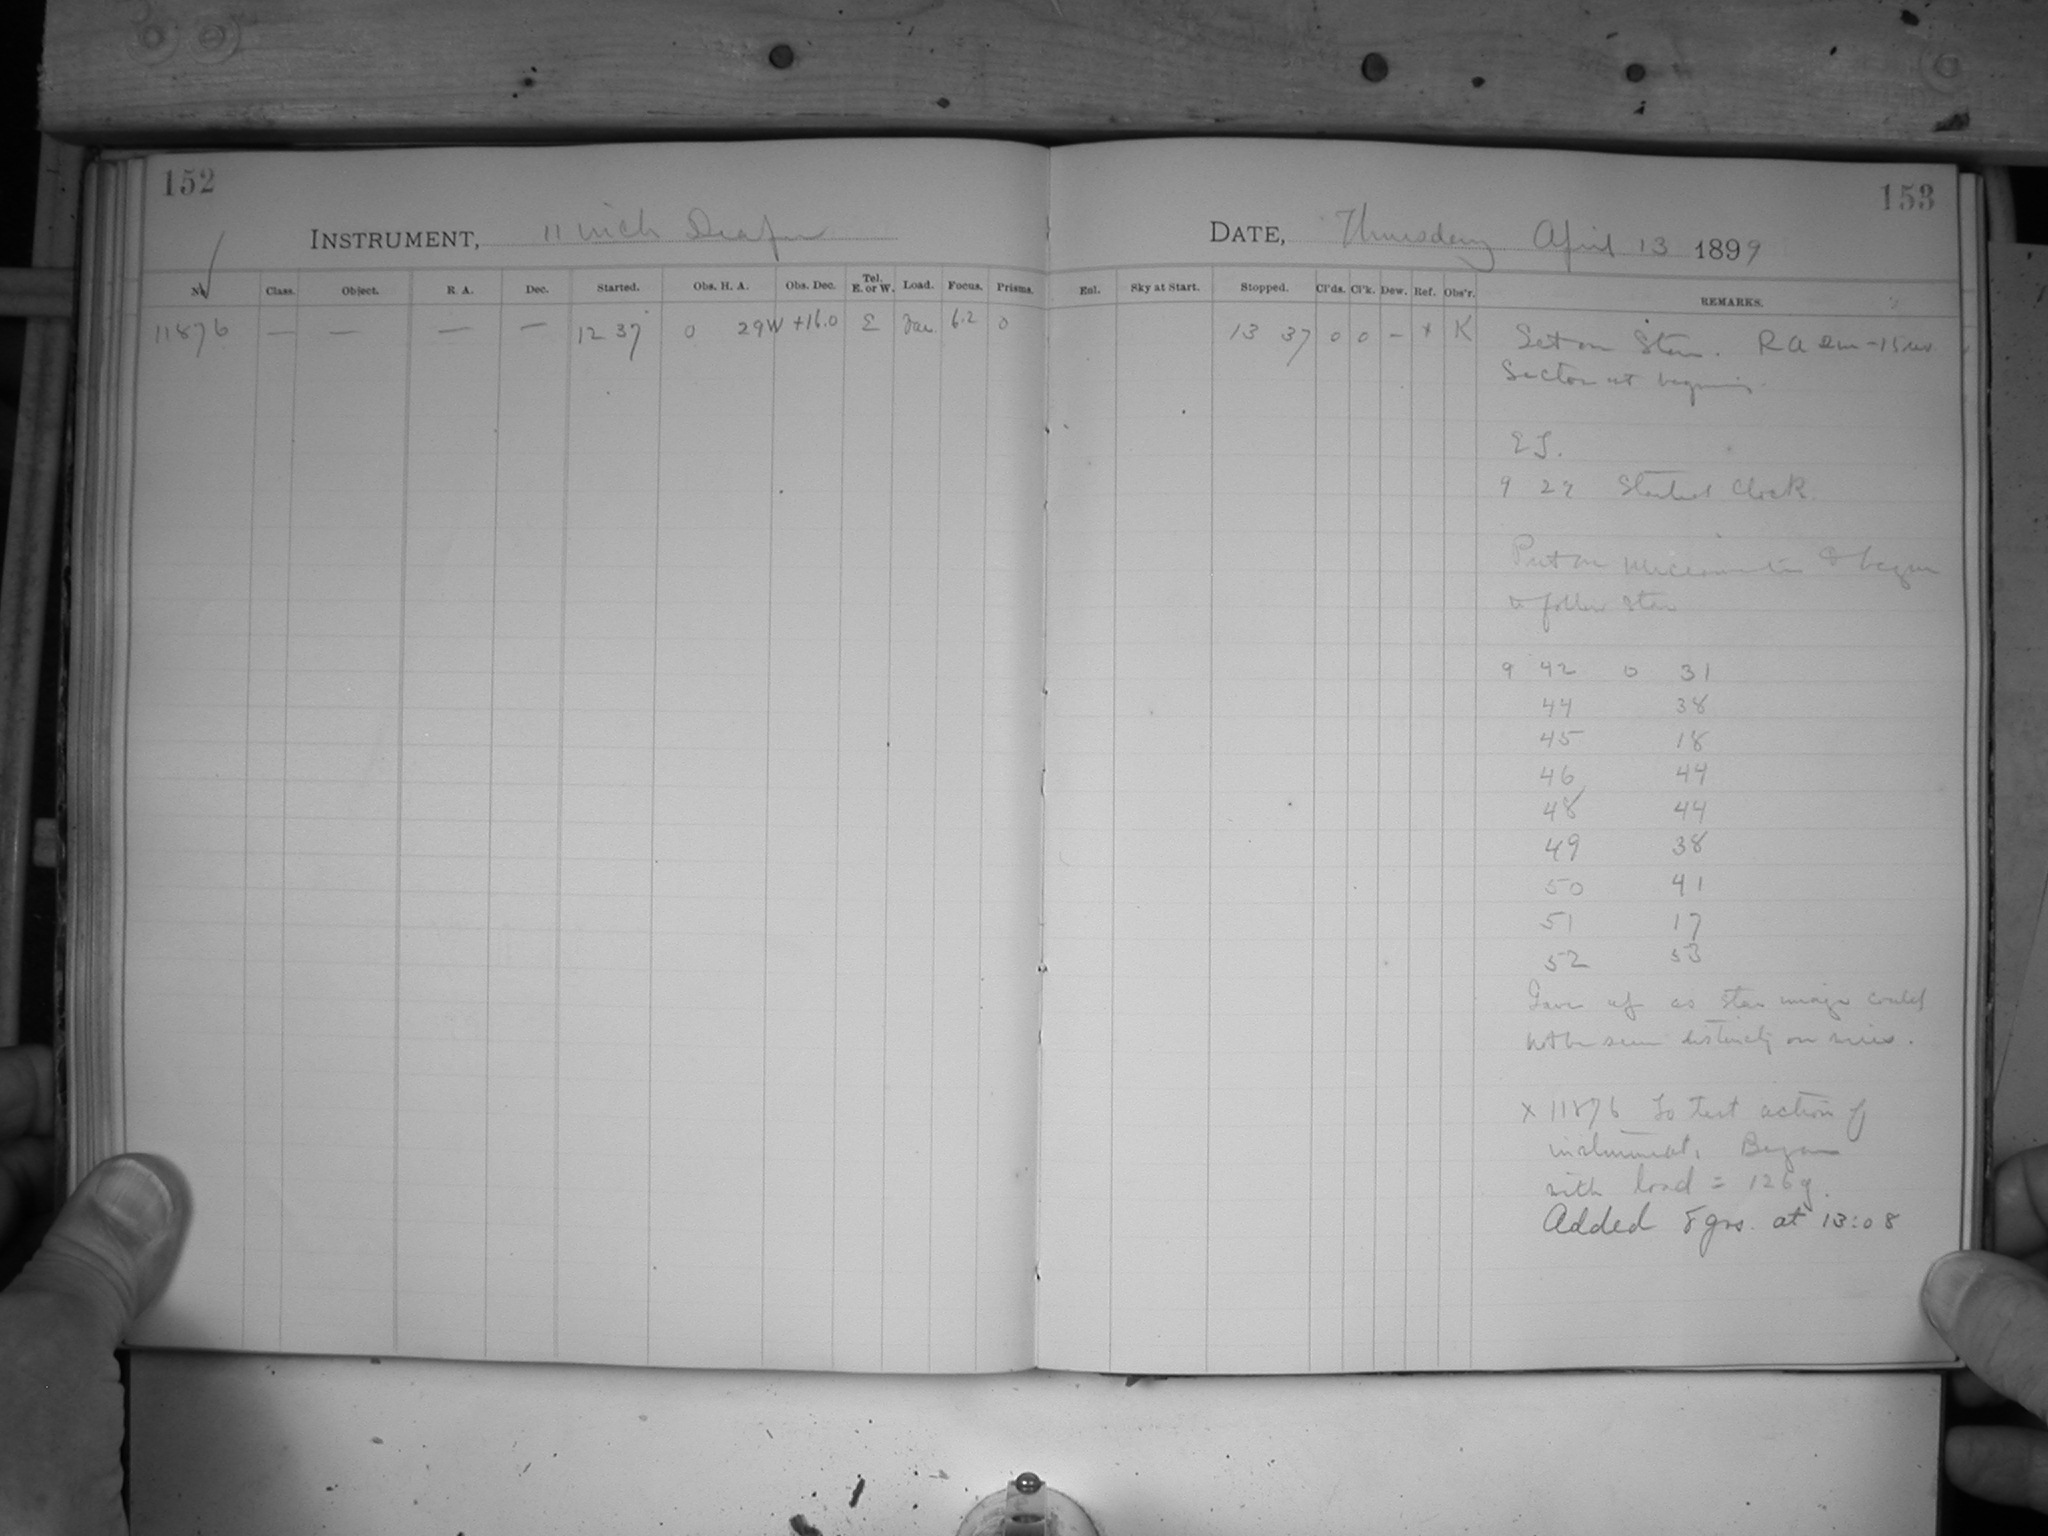 152
INSTRUMENT, 11 inch Draper
No. Class. Object. R. A. Dec. Started. Obs. H. A. Obs. Dec. Tel. E. or W. Load. Focus. Prisms.
11876 — — — — 12 37 0 29W +16.0 E Var. 6.2 0
153
DATE, Thursday April 13 1899
Eul. Sky at Start. Stopped. Cl'ds. Cl'k. Dew. Ref. Obs'r. REMARKS.
13 37 0 0 – x K Set on Star. R A
Sector at beginning
9 29 Started Clock
Put on Micrometer & began
to follow star
9 42 0 31
44 38
45 18
46 44
48 44
49 38
50 41
51 17
52 53
Gave up as star image could
not be seen distinctly on
x 11876 To test action of
instrument. Began
with load = 126g.
Added 8 grs. at 13:08